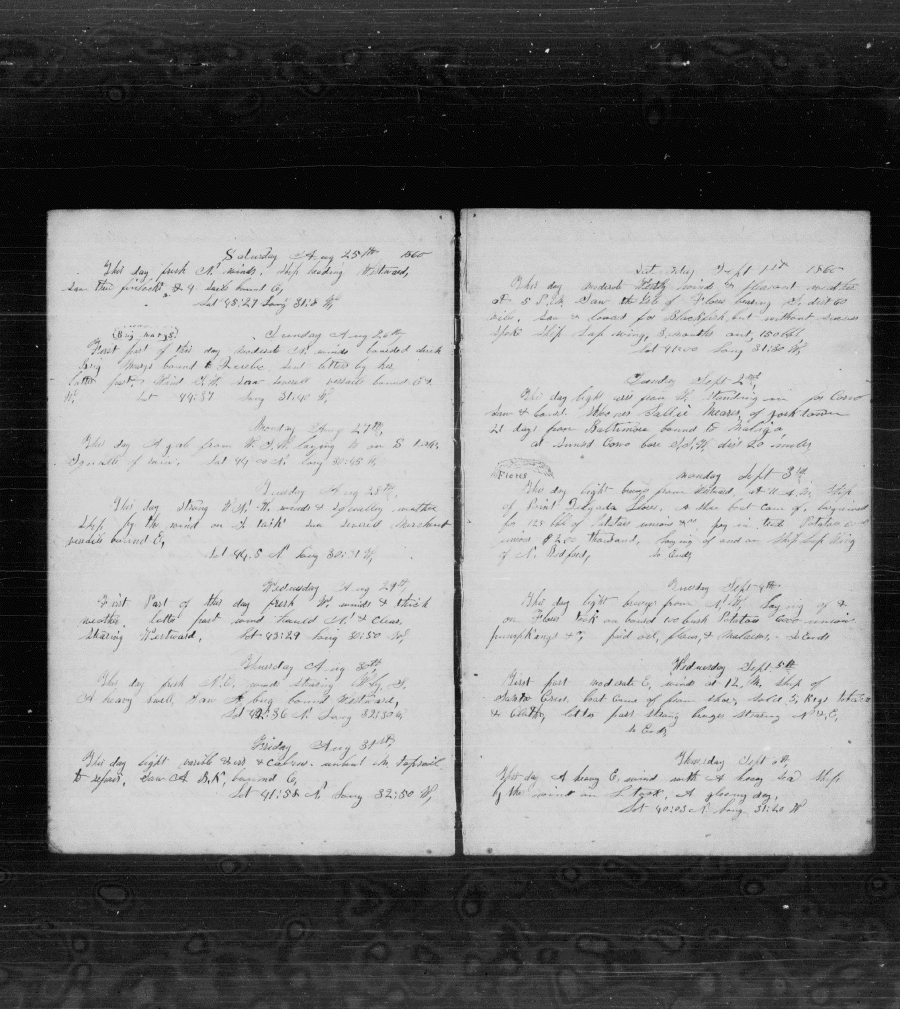 Saturday Aug 25th 1860
This day fresh N. winds. Ship heading Westward,
saw two finbacks & 4 sails bound E,
Lat 45:27 Long 31:11 W,
Brig Marys
Sunday Aug 26th
First part of this day moderate N. winds boarded
Brig Marys bound to sent letter by her,
latter part. Wind S.W. saw several vessels bound E &
W, Lat 44:57 Long 31:40 W,
Monday Aug 27th,
This day A gale from W.S.W. laying to on S tack,
Squalls of rain. Lat 44 N. Long 30:45 W,
Tuesday Aug 28th,
This day strong W.N.W. winds & squally weather
Ship by the wind on tack saw several Merchant
vessels bound E,
Lat 44.5 N Long 30:31 W,
Wednesday Aug 29th,
First Part of this day fresh W. winds & thick
weather. latter part wind hauled N. & clear.
Stearing Westward, Lat 43:29 Long 30:50 W,
Thursday Aug 30th
This day fresh N.E. wind stearing W by S.
A heavy swell, Saw A brig bound Westward,
Lat 42:36 N. Long 32:30 W,
Friday Aug 31st,
This day light & Calm. unbent M. Topsail
to repair, Saw A Bark bound E,
Lat 41:58 N Long 32:50 W,
Saturday Sept 1st 1860
This day moderate wind & pleasant weather
at 5 P.M. Saw the Isle of Flores bearing S, dist 60
miles. Saw & lowered for Blackfish, but without success
Spoke Ship Lap wing, 3 months out, 150 bbl
Lat 41:00 Long 31:30 W,
Sunday Sept 2nd,
This day light airs from standing in for Corvo
Saw & board. Schooner Sallie Mears, of york town
21 days from Baltimore bound to Malaga
at sunset Corvo bore S.S.W. dist 20 miles,
Flores
Monday Sept 3rd
This day light breeze from Westward, at 11 A.M. Ship
of Point Delgada Flores. A shore boat came of, bargained
for 125 bbl of Potatoes onions &c. pay in trade Potatoes
onions $2.00 thousand, laying of and on Ship Lap Wing
of N. Bedford, So Ends
Tuesday Sept 4th
This day light breeze from N.W. Laying of &
on Flores took on board 100 bush Potatoes onions
pumpkings &c, paid oil, flour, & Molasses. So Ends
Wednesday Sept 5th
First part moderate E, winds at 12, M. Ship of
Santa Cruz. boat came of from shore, Sold 2, Kegs tobacco
& Cloth, latter part strong breeze stearing N & E,
So Ends
Thursday Sept 6th
This day A heavy E, wind with A heavy sea Ship
by the wind on S tack. A gloomy day,
Lat 40:03 N Long 31:40 W